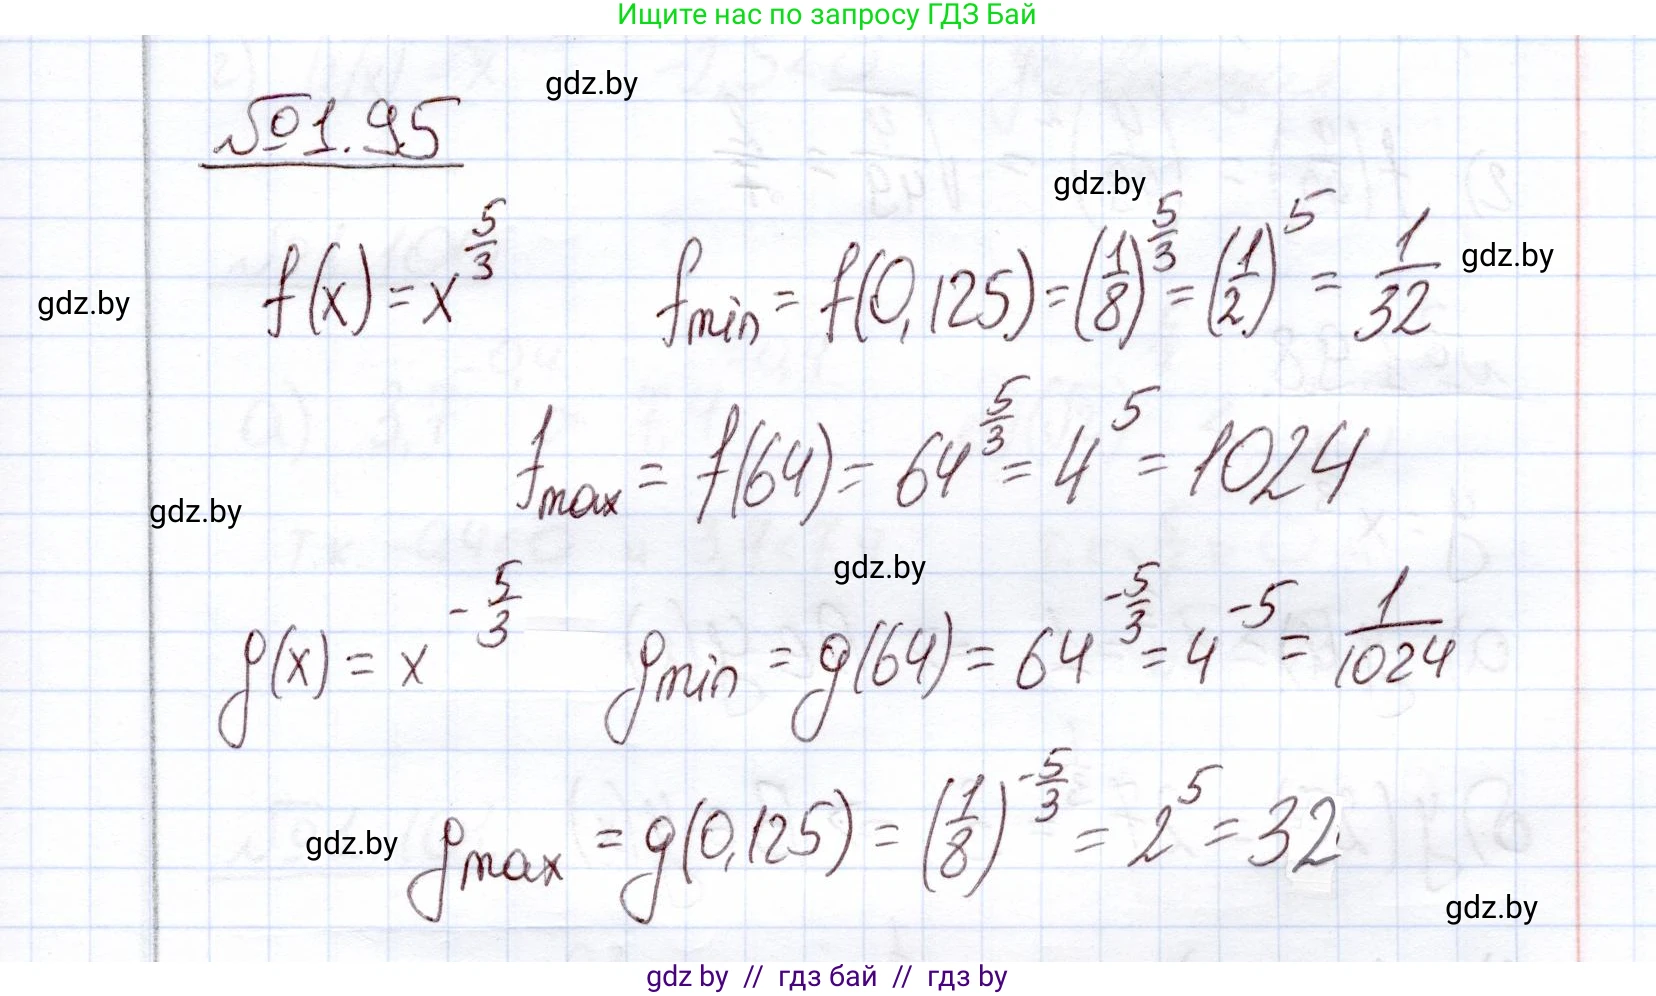 Ищите нас по запросу ГДЗ Бай
gdz.by
№1.95
gdz.by
f(x) = x^{5/3}   f_{min} = f(0,125) = (1/8)^{5/3} = (1/2)^5 = 1/32
gdz.by
gdz.by
f_{max} = f(64) = 64^{5/3} = 4^5 = 1024
gdz.by
gdz.by
g(x) = x^{-5/3}   g_{min} = g(64) = 64^{-5/3} = 4^{-5} = 1/1024
g_{max} = g(0,125) = (1/8)^{-5/3} = 2^5 = 32
gdz.by
gdz.by
gdz by // гдз бай // гдз by